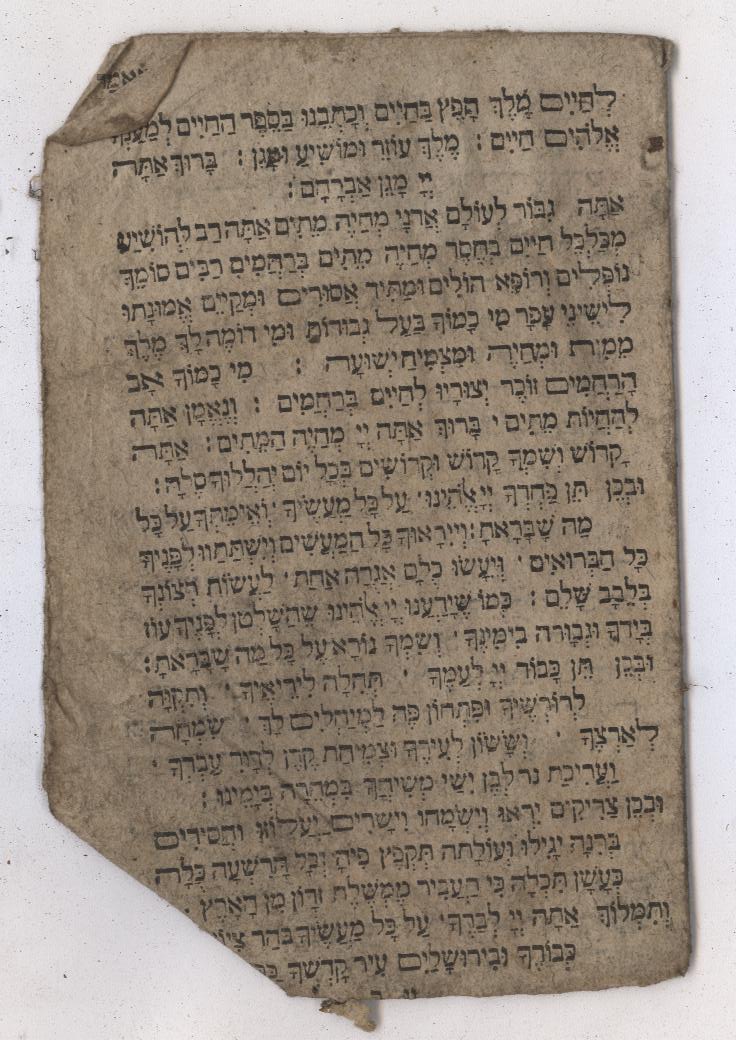 לְחַיִּים מֶלֶךְ חָפֵץ בַּחַיִּים וְכָתְבֵנוּ בְּסֵפֶר הַחַיִּים לְמַעַנְךָ
אֱלֹהִים חַיִּים : מֶלֶךְ עוֹזֵר וּמוֹשִׁיעַ וּמָגֵן : בָּרוּךְ אַתָּה
יְיָ מָגֵן אַבְרָהָם :
אַתָּה גִּבּוֹר לְעוֹלָם אֲדֹנָי מְחַיֵּה מֵתִים אַתָּה רַב לְהוֹשִׁיעַ
מְכַלְכֵּל חַיִּים בְּחֶסֶד מְחַיֵּה מֵתִים בְּרַחֲמִים רַבִּים סוֹמֵךְ
נוֹפְלִים וְרוֹפֵא חוֹלִים וּמַתִּיר אֲסוּרִים וּמְקַיֵּם אֱמוּנָתוֹ
לִישֵׁינֵי עָפָר מִי כָמוֹךָ בַּעַל גְּבוּרוֹת וּמִי דוֹמֶה לָּךְ מֶלֶךְ
מֵמִית וּמְחַיֶּה וּמַצְמִיחַ יְשׁוּעָה : מִי כָמוֹךָ אָב
הָרַחֲמִים זוֹכֵר יְצוּרָיו לְחַיִּים בְּרַחֲמִים : וְנֶאֱמָן אַתָּה
לְהַחֲיוֹת מֵתִים י בָּרוּךְ אַתָּה יְיָ מְחַיֵּה הַמֵּתִים : אַתָּה
קָדוֹשׁ וְשִׁמְךָ קָדוֹשׁ וּקְדוֹשִׁים בְּכָל יוֹם יְהַלְלוּךָ סֶלָה :
וּבְכֵן תֵּן פַּחְדְּךָ יְיָ אֱלֹהֵינוּ י עַל כָּל מַעֲשֶׂיךָ י וְאֵימָתְךָ עַל כָּל
מַה שֶּׁבָּרָאתָ : וְיִירָאוּךָ כָּל הַמַּעֲשִׂים וְיִשְׁתַּחֲווּ לְפָנֶיךָ
כָּל הַבְּרוּאִים י וְיֵעָשׂוּ כֻלָּם אֲגֻדָּה אַחַת י לַעֲשׂוֹת רְצוֹנְךָ
בְּלֵבָב שָׁלֵם : כְּמוֹ שֶׁיָּדַעְנוּ יְיָ אֱלֹהֵינוּ שֶׁהַשָּׁלְטָן לְפָנֶיךָ עוֹז
בְּיָדְךָ וּגְבוּרָה בִּימִינֶךָ י וְשִׁמְךָ נוֹרָא עַל כָּל מַה שֶּׁבָּרָאתָ :
וּבְכֵן תֵּן כָּבוֹד יְיָ לְעַמֶּךָ י תְּהִלָּה לִירֵיאֶיךָ י וְתִקְוָה
לְדוֹרְשֶׁיךָ וּפִתְחוֹן פֶּה לַמְיַחֲלִים לָךְ י שִׂמְחָה
לְאַרְצֶךָ י וְשָׂשׂוֹן לְעִירֶךָ וּצְמִיחַת קֶרֶן לְדָוִד עַבְדֶּךָ י
וַעֲרִיכַת נֵר לְבֶן יִשַׁי מְשִׁיחֶךָ בִּמְהֵרָה בְיָמֵינוּ :
וּבְכֵן צַדִּיקִים יִרְאוּ וְיִשְׂמָחוּ וִישָׁרִים יַעֲלוֹזוּ וַחֲסִידִים
בְּרִנָּה יָגִילוּ וְעוֹלָתָה תִּקְפָּץ פִּיהָ וְכָל הָרִשְׁעָה כֻּלָּהּ
כְּעָשָׁן תִּכְלֶה כִּי תַעֲבִיר מֶמְשֶׁלֶת זָדוֹן מִן הָאָרֶץ י
וְתִמְלוֹךְ אַתָּה יְיָ לְבַדֶּךָ י עַל כָּל מַעֲשֶׂיךָ בְּהַר
כְּבוֹדֶךָ וּבִירוּשָׁלַיִם עִיר קָדְשֶׁךָ